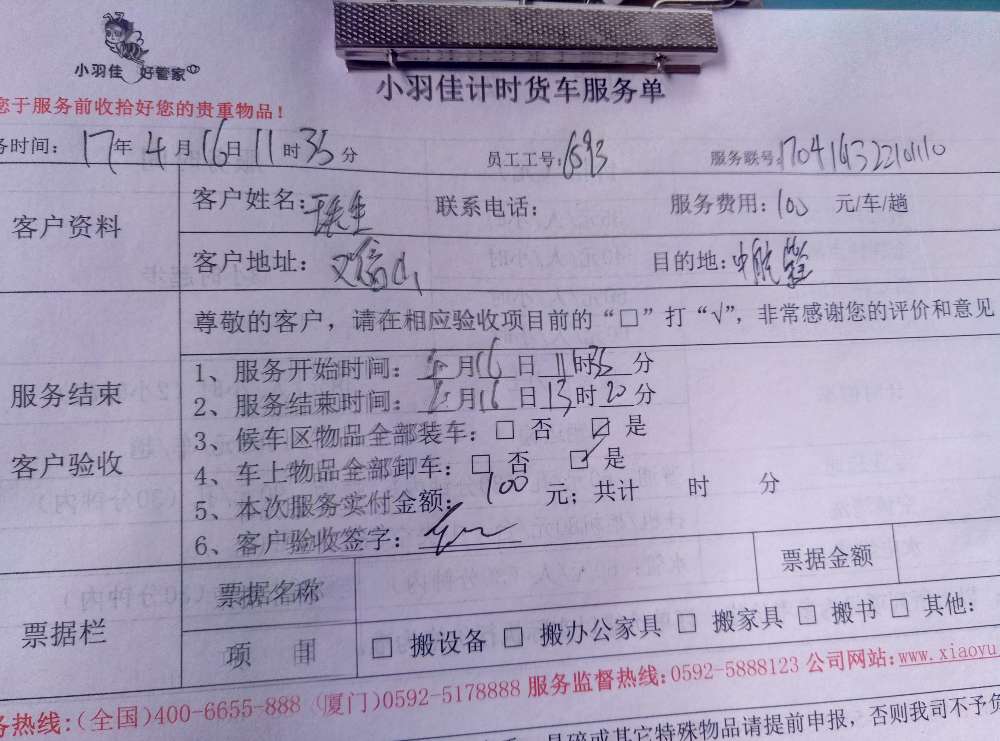 小羽佳 好管家
小羽佳计时货车服务单
您于服务前收拾好您的贵重物品!
务时间: 17年4月16日11时35分 员工工号: 服务联号:
客户资料
客户姓名: 联系电话: 服务费用:100 元/车/趟
客户地址: 目的地:
服务结束
客户验收
尊敬的客户,请在相应验收项目前的“□”打“√”,非常感谢您的评价和意见
1、服务开始时间: 4月16日11时35分
2、服务结束时间: 月16日13时20分
3、候车区物品全部装车:□ 否 ☑ 是
4、车上物品全部卸车:□ 否 ☑ 是
5、本次服务实付金额: 100 元;共计 时 分
6、客户验收签字:
票据栏
票据名称 票据金额
项 目 □ 搬设备 □ 搬办公家具 □ 搬家具 □ 搬书 □ 其他:
务热线:(全国)400-6655-888 (厦门)0592-5178888 服务监督热线:0592-5888123 公司网站:www.xiaoyu
易碎或其它特殊物品请提前申报,否则我司不予负